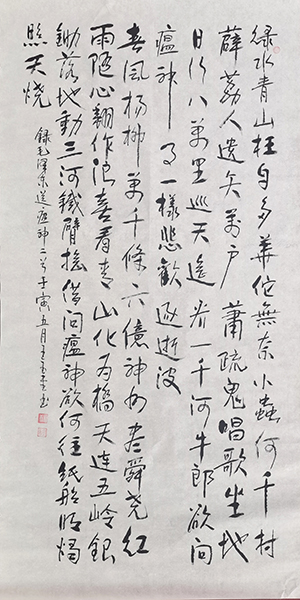 緑水青山枉自多華佗無奈小蟲何千村
薜荔人遺矢萬户蕭疏鬼唱歌坐地
日行八萬里巡天遥看一千河牛郎欲問
瘟神事一樣悲歡逐逝波
春風楊柳萬千條六億神州盡舜堯紅
雨隨心翻作浪喜看青山化为橋天連五嶺銀
鋤落地動三河鐵臂摇借問瘟神欲何往紙船明燭
照天燒
録毛澤東送瘟神二首壬寅五月王书